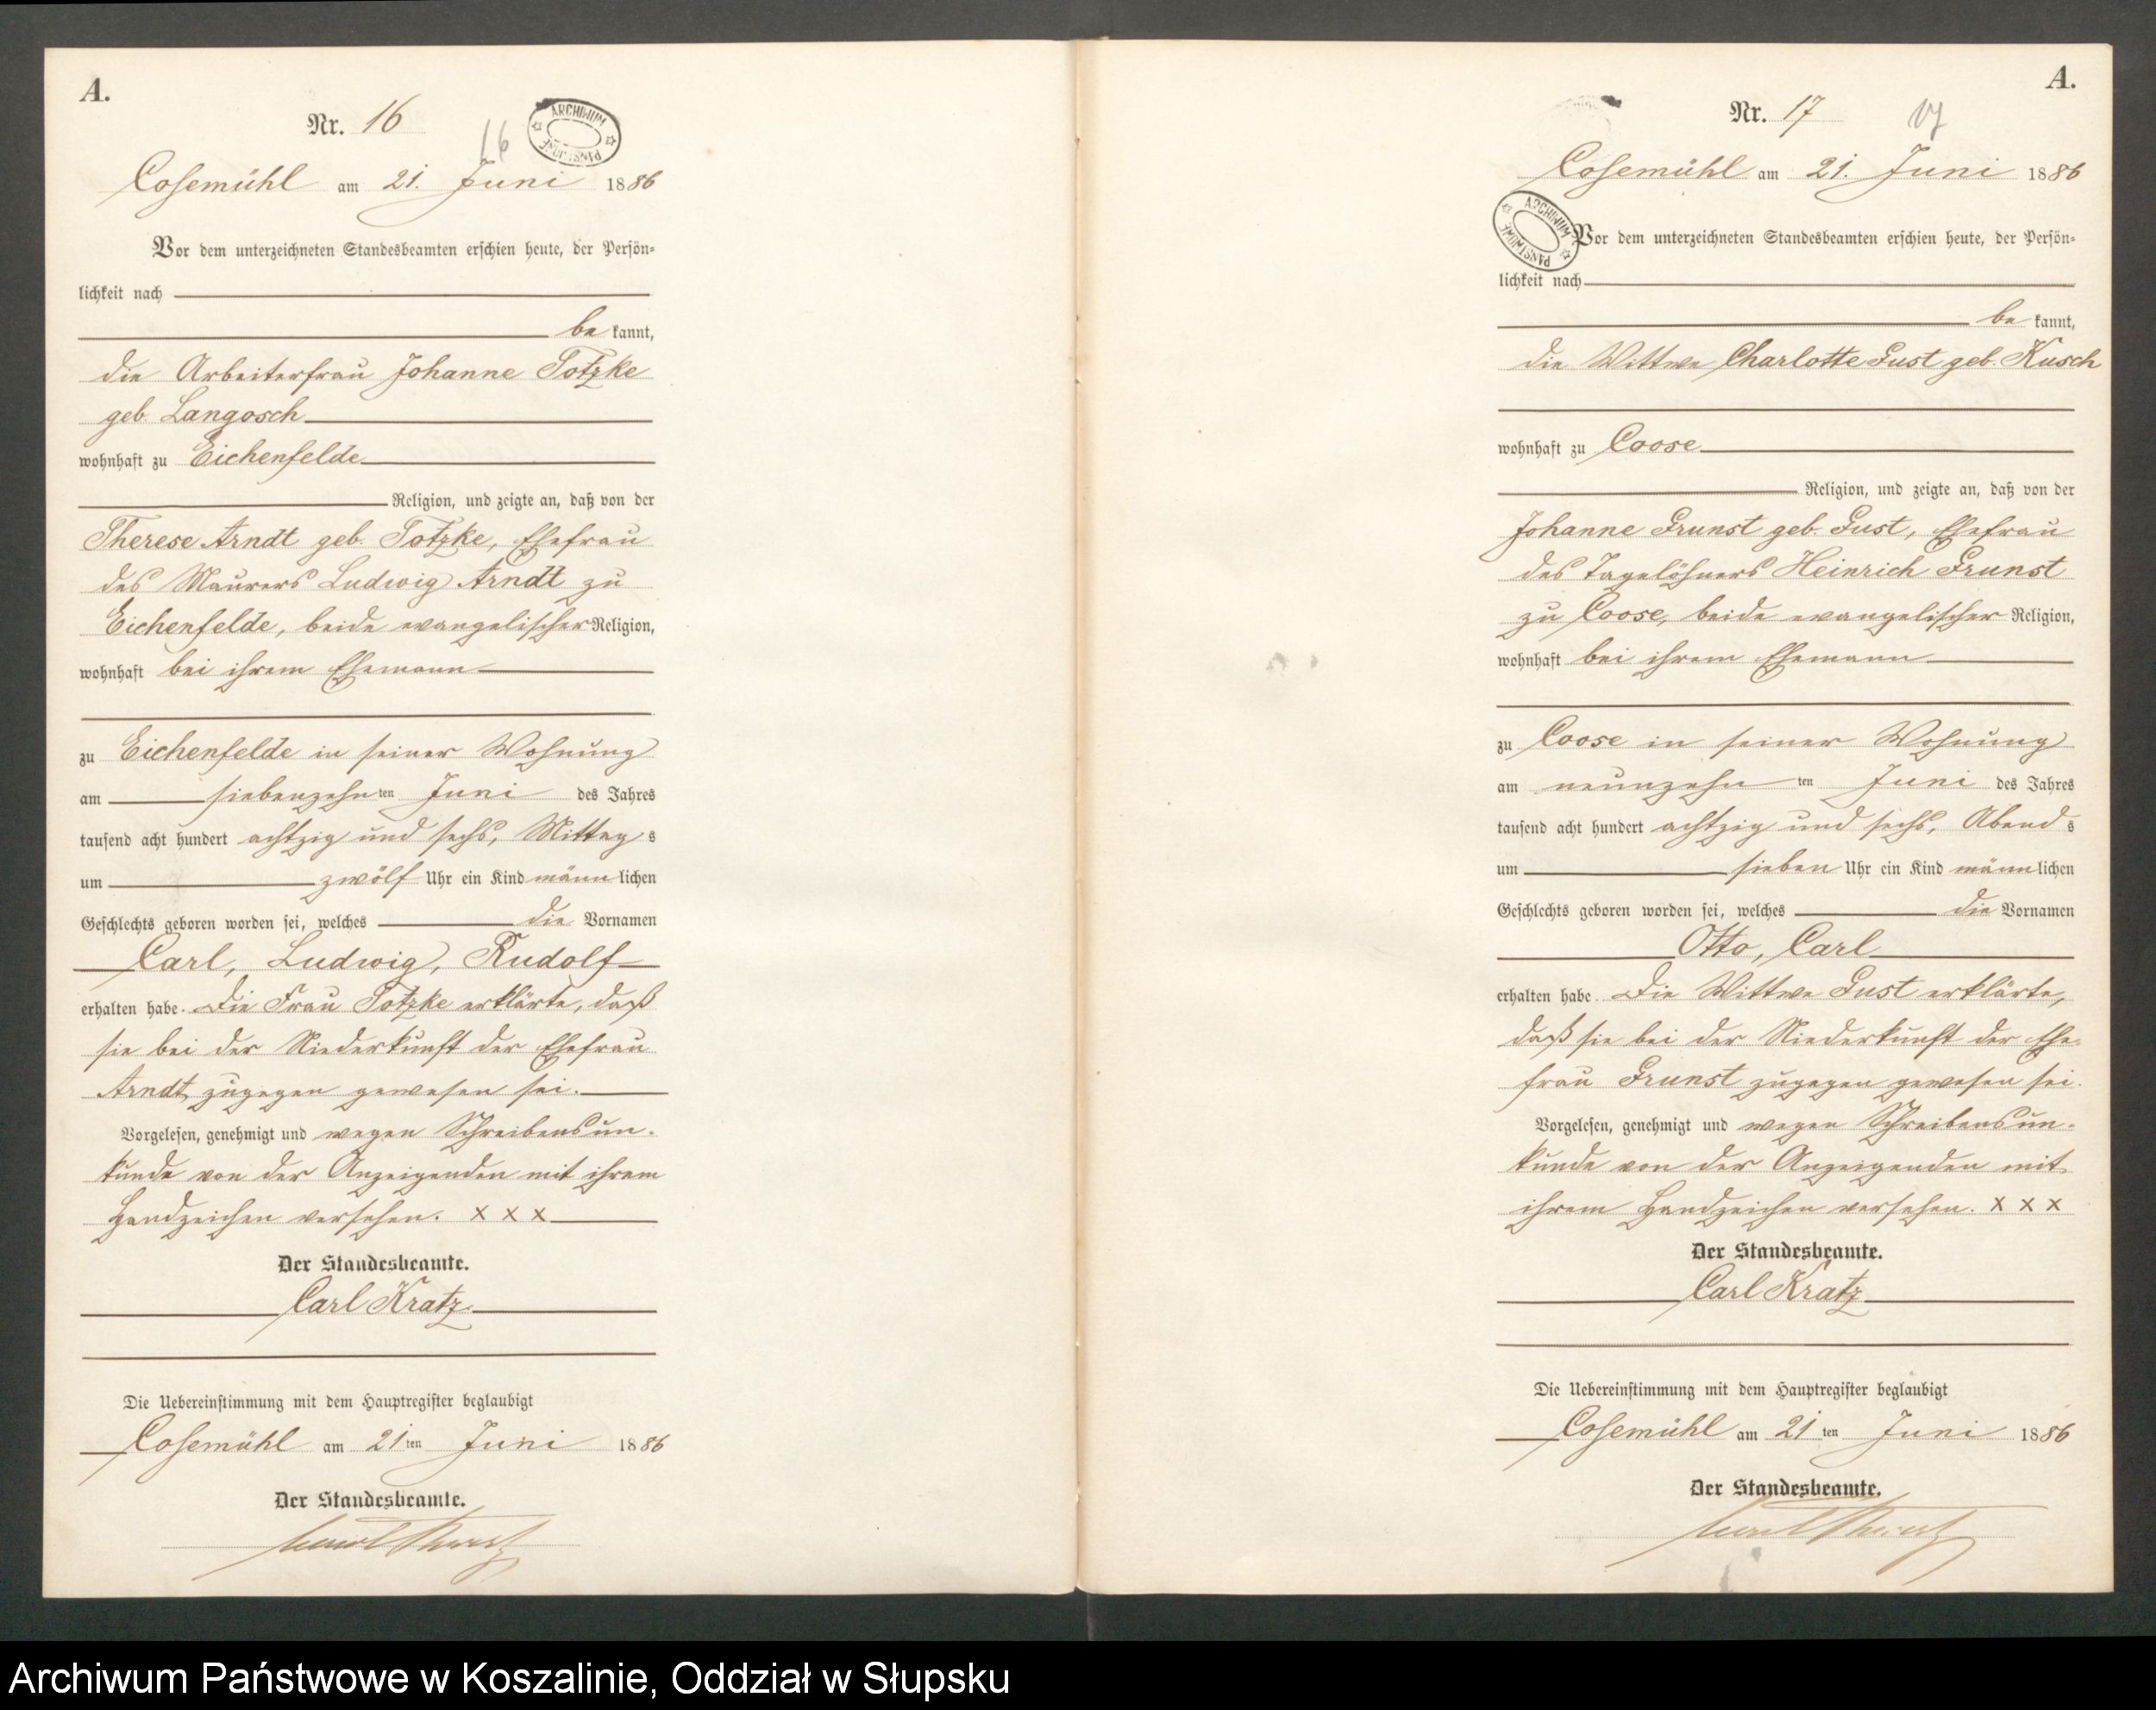 A.
Nr. 16
16
ARCHIWUM PAŃSTWOWE
Cosemühl am 21. Juni 1886
Vor dem unterzeichneten Standesbeamten erschien heute, der Persön=
lichkeit nach
be kannt,
die Arbeiterfrau Johanne Totzke
geb. Langosch
wohnhaft zu Eichenfelde
Religion, und zeigte an, daß von der
Therese Arndt geb. Totzke, Ehefrau
des Maurers Ludwig Arndt zu
Eichenfelde, beide evangelischer Religion,
wohnhaft bei ihrem Ehemann
zu Eichenfelde in seiner Wohnung
am siebenzehn ten Juni des Jahres
tausend acht hundert achtzig und sechs, Mittag s
um zwölf Uhr ein Kind männ lichen
Geschlechts geboren worden sei, welches die Vornamen
Carl, Ludwig, Rudolf
erhalten habe. Die Frau Totzke erklärte, daß
sie bei der Niederkunft der Ehefrau
Arndt zugegen gewesen sei.
Vorgelesen, genehmigt und wegen Schreibensun-
kunde von der Anzeigenden mit ihrem
Handzeichen versehen. x x x
Der Standesbeamte.
Carl Kratz.
Die Uebereinstimmung mit dem Hauptregister beglaubigt
Cosemühl am 21 ten Juni 1886
Der Standesbeamte.
Carl Kratz
A.
Nr. 17
17
Cosemühl am 21. Juni 1886
ARCHIWUM PAŃSTWOWE
Vor dem unterzeichneten Standesbeamten erschien heute, der Persön=
lichkeit nach
be kannt,
die Wittwe Charlotte Gust geb. Kusch
wohnhaft zu Coose
Religion, und zeigte an, daß von der
Johanne Grunst geb. Gust, Ehefrau
des Tagelöhners Heinrich Grunst
zu Coose, beide evangelischer Religion,
wohnhaft bei ihrem Ehemann
zu Coose in seiner Wohnung
am neunzehn ten Juni des Jahres
tausend acht hundert achtzig und sechs, Abend s
um sieben Uhr ein Kind männ lichen
Geschlechts geboren worden sei, welches die Vornamen
Otto, Carl
erhalten habe. Die Wittwe Gust erklärte,
daß sie bei der Niederkunft der Ehe-
frau Grunst zugegen gewesen sei.
Vorgelesen, genehmigt und wegen Schreibensun-
kunde von der Anzeigenden mit
ihrem Handzeichen versehen. x x x
Der Standesbeamte.
Carl Kratz
Die Uebereinstimmung mit dem Hauptregister beglaubigt
Cosemühl am 21 ten Juni 1886
Der Standesbeamte.
Carl Kratz
Archiwum Państwowe w Koszalinie, Oddział w Słupsku